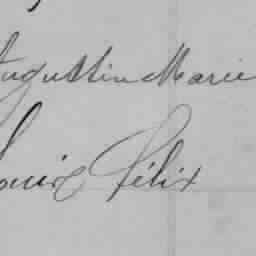 Augustin Marie
Louis Félix